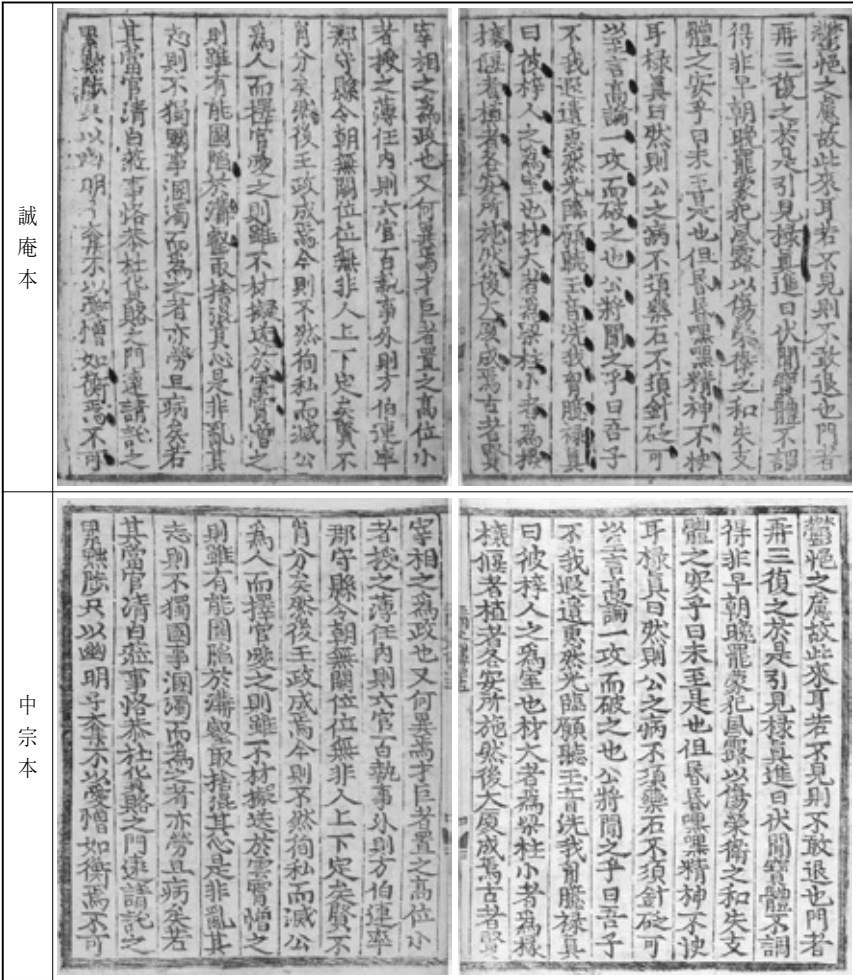 誠庵本
鬱悒之慮故此來耳若不見則不敢退也門者
再三復之於是引見祿眞進曰伏聞寶體不調
得非早朝晚罷蒙犯風露以傷榮衛之和失支
體之安乎曰未至是也但昏昏嘿嘿精神不快
耳祿眞曰然則公之病不須藥石不須針砭可
以至言高論一攻而破之也公將聞之乎曰吾子
不我遐遺惠然光臨願聽玉音洗我胷臆祿眞
曰彼梓人之爲室也材大者爲梁柱小者爲椽
榱偃者植者各安所施然後大厦成焉古者賢
宰相之爲政也又何異焉才巨者置之高位小
者授之薄任內則六官百執事外則方伯連率
郡守縣令朝無闕位位無非人上下定矣賢不
肖分矣然後王政成焉今則不然徇私而滅公
爲人而擇官愛之則雖不材擬送於雲霄憎之
則雖有能圖陷於溝壑取捨混其心是非亂其
志則不獨國事溷濁而爲之者亦勞且病矣若
其當官清白莅事恪恭杜貨賂之門遠請託之
累黜陟只以幽明予奪不以愛憎如衡焉不可
中宗本
鬱悒之慮故此來耳若不見則不敢退也門者
再三復之於是引見祿眞進曰伏聞寶體不調
得非早朝晚罷蒙犯風露以傷榮衛之和失支
體之安乎曰未至是也但昏昏嘿嘿精神不快
耳祿眞曰然則公之病不須藥石不須針砭可
以至言高論一攻而破之也公將聞之乎曰吾子
不我遐遺惠然光臨願聽玉音洗我胷臆祿眞
曰彼梓人之爲室也材大者爲梁柱小者爲椽
榱偃者植者各安所施然後大厦成焉古者賢
宰相之爲政也又何異焉才巨者置之高位小
者授之薄任內則六官百執事外則方伯連率
郡守縣令朝無闕位位無非人上下定矣賢不
肖分矣然後王政成焉今則不然徇私而滅公
爲人而擇官愛之則雖不材擬送於雲霄憎之
則雖有能圖陷於溝壑取捨混其心是非亂其
志則不獨國事溷濁而爲之者亦勞且病矣若
其當官清白莅事恪恭杜貨賂之門遠請託之
累黜陟只以幽明予奪不以愛憎如衡焉不可